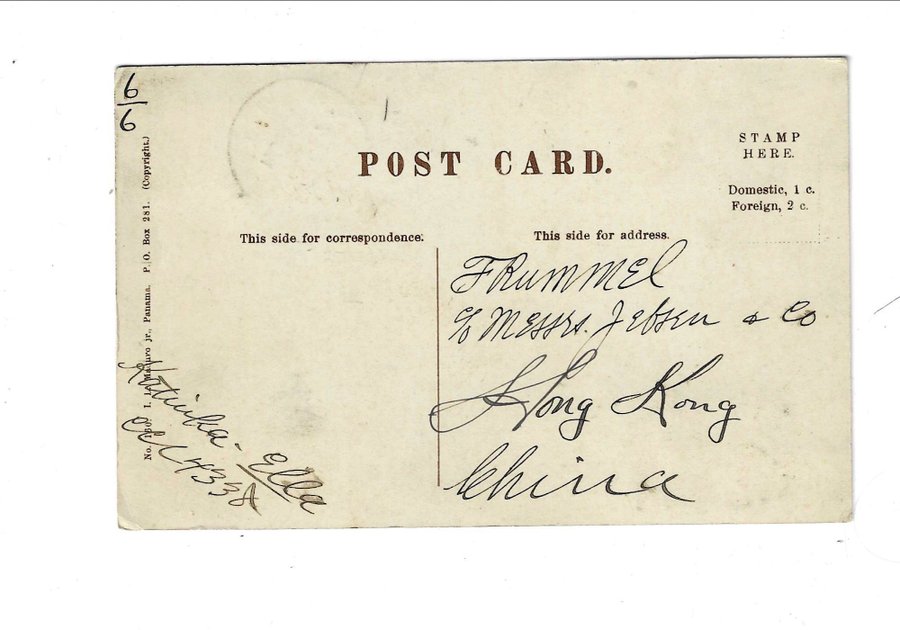 6
6
POST CARD.
STAMP
HERE.
Domestic, 1 c.
Foreign, 2 c.
This side for correspondence.
This side for address.
F Rummel
c/o Messrs. Jebsen & Co
Hong Kong
China
No. I. L. Maduro jr., Panama. P. O. Box 281. (Copyright.)
Ella